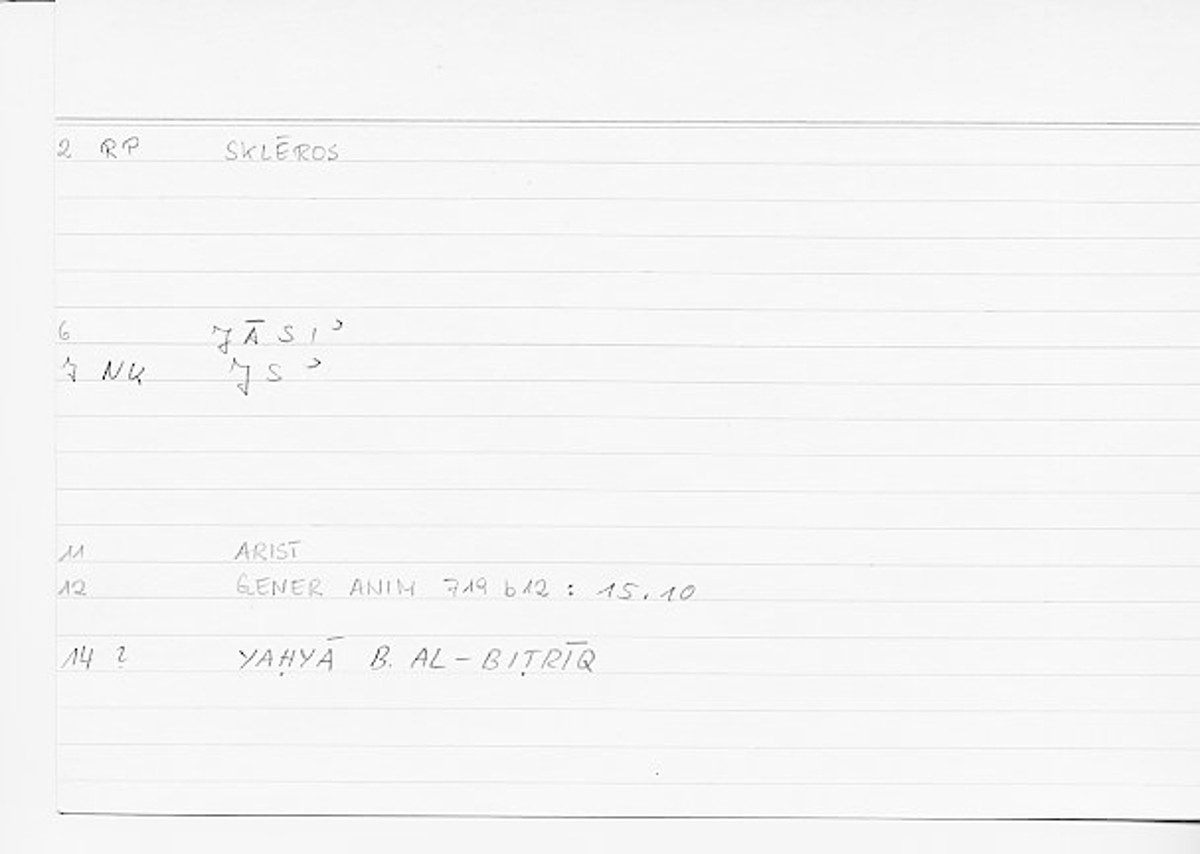 2 RP SKLĒROS
6 JĀSIʾ
7 NK JSʾ
11 ARIST
12 GENER ANIM 719 b12 : 15.10
14 ? YAḤYĀ B. AL-BIṬRĪQ